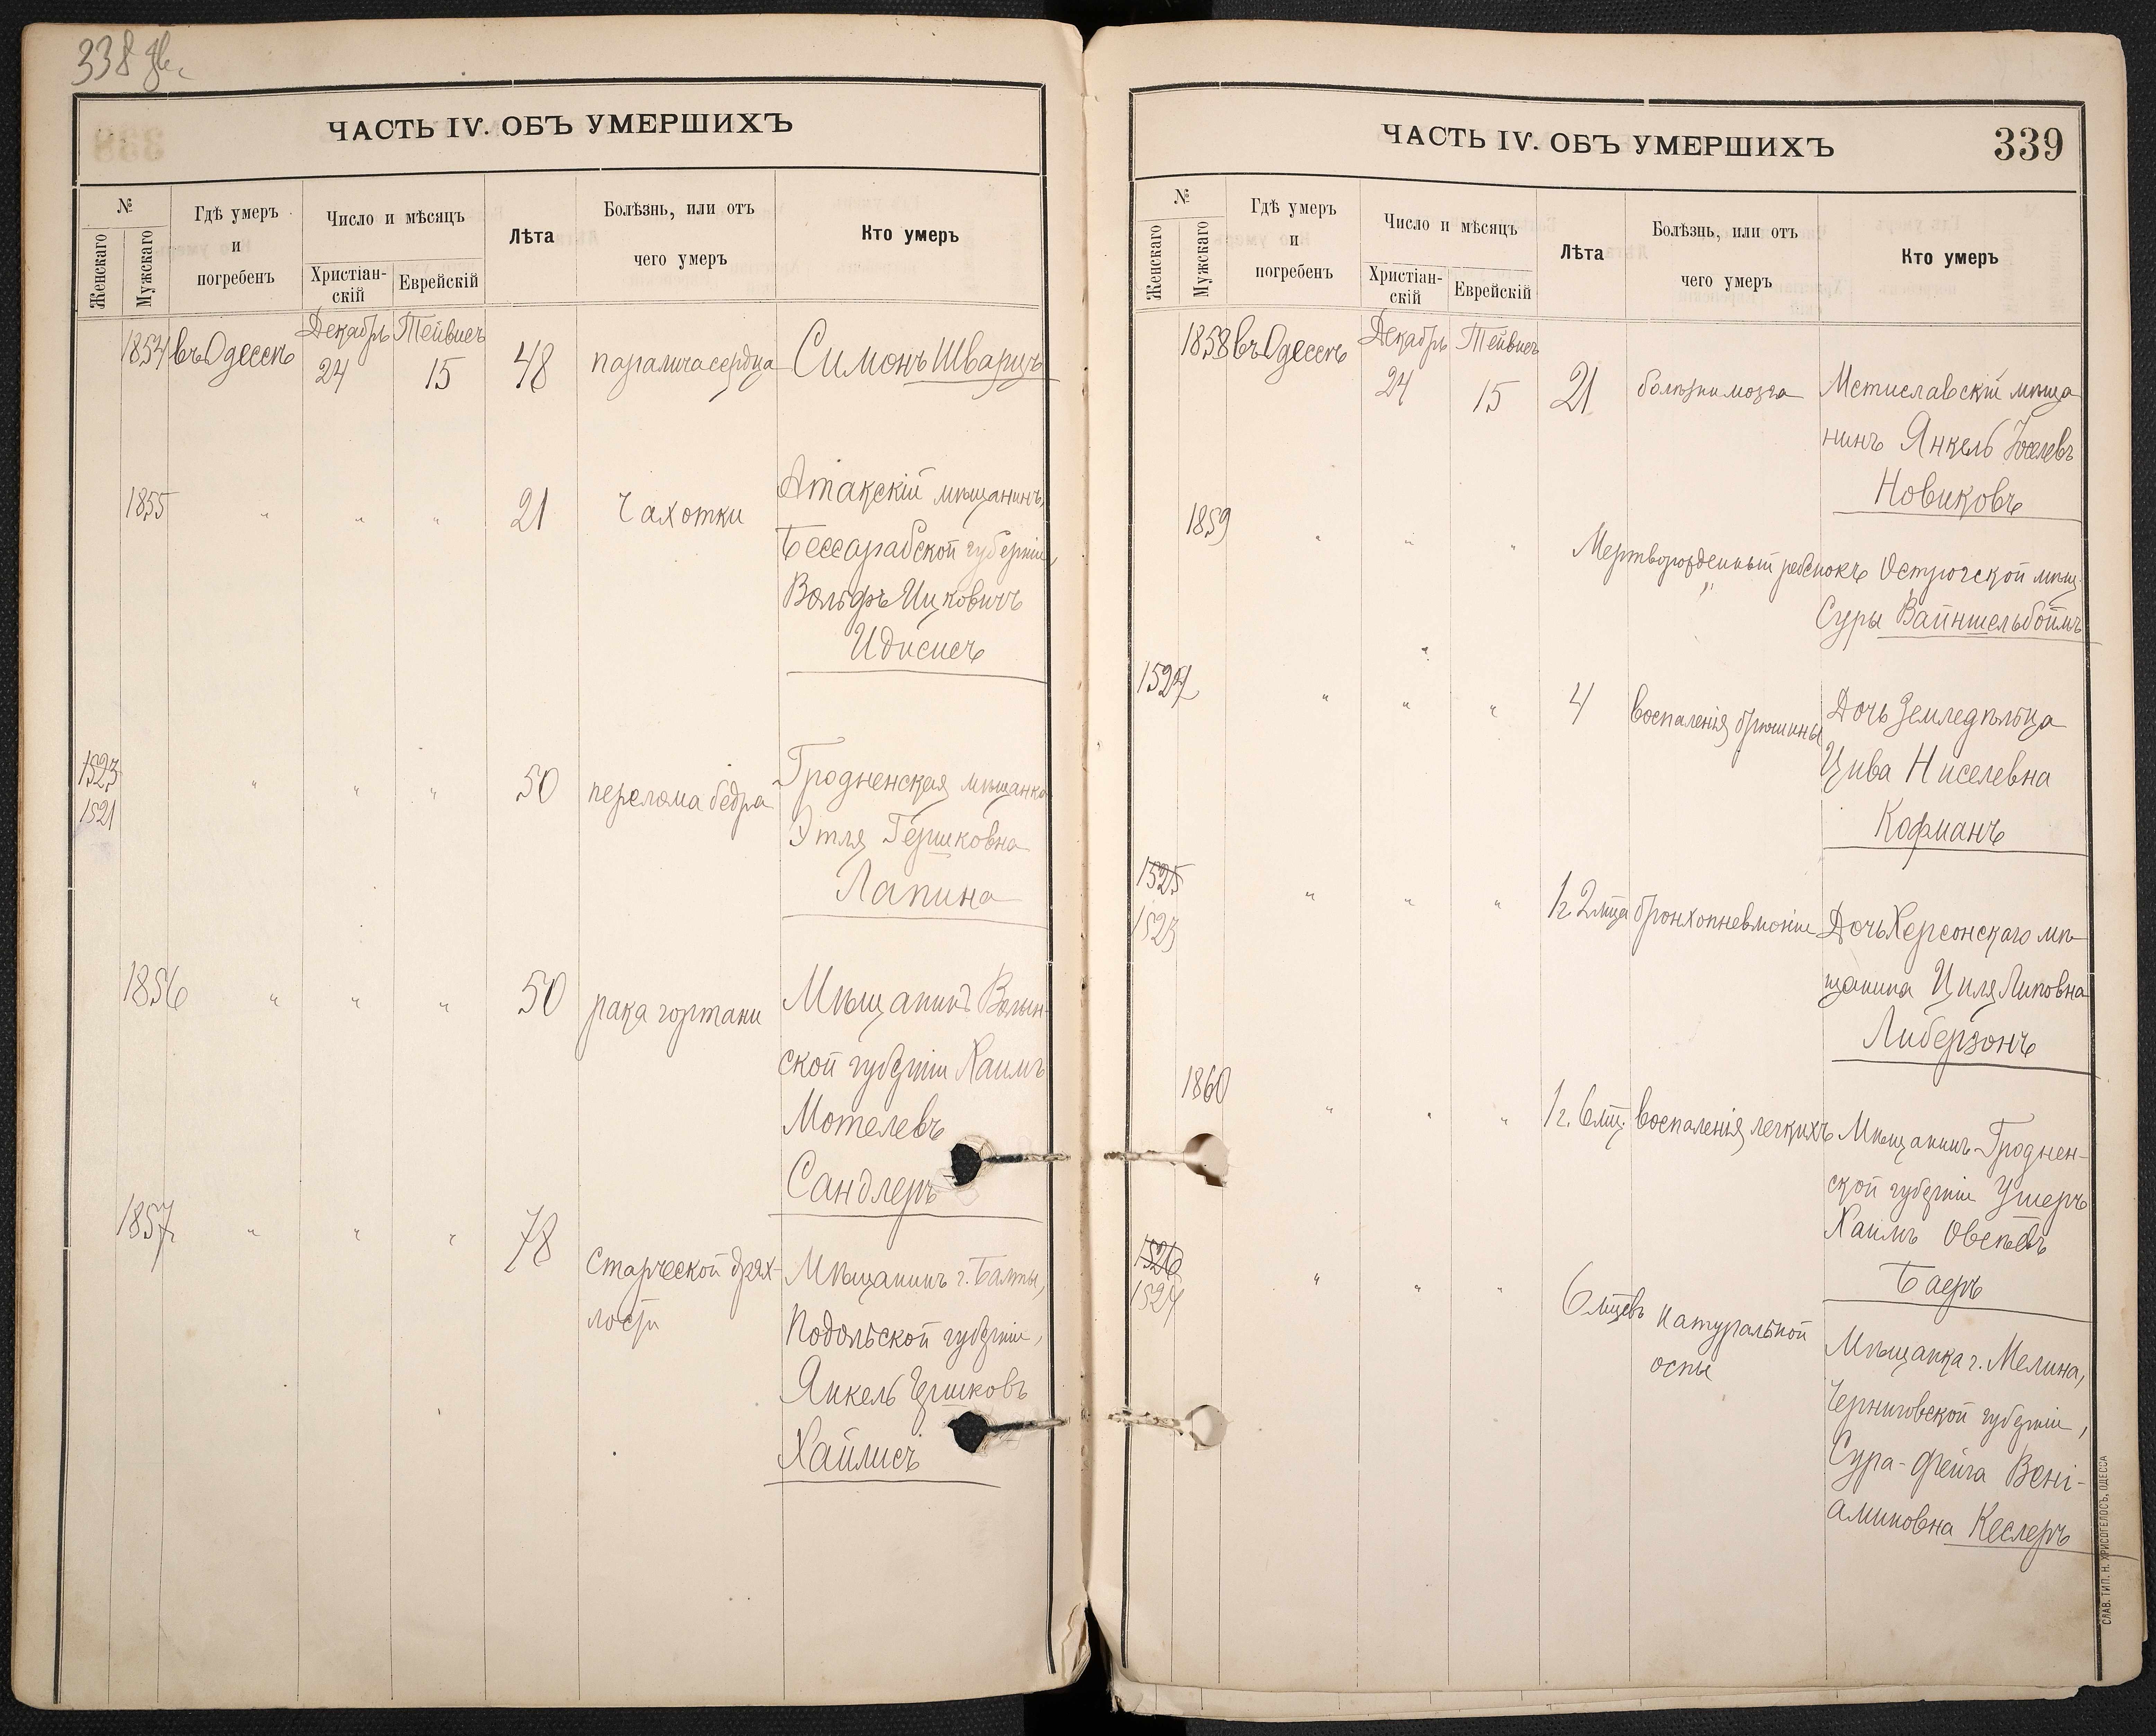 338
ЧАСТЬ IV. ОБЪ УМЕРШИХЪ
№
Женскаго
Мужскаго
Гдѣ умеръ
и
погребенъ
Число и мѣсяцъ
Христіан-
скій
Еврейскій
Лѣта
Болѣзнь, или отъ
чего умеръ
Кто умеръ
1854 въ Одессѣ Декабрь 24 Тейвисъ 15 48 паралича сердца Симонъ Шварцъ
1855 " " " 21 Чахотки Атакскій мѣщанинъ,
Бессарабской губерніи,
Вольфъ Ицковичъ
Идисисъ
1523 " " " 50 перелома бедра Гродненская мѣщанка
1521 Этля Гершковна
Лапина
1856 " " " 50 рака гортани Мѣщанинъ Волын-
ской губерніи Хаимъ
Мотелевъ
Сандлеръ
1857 " " " 78 Старческой дрях- Мѣщанинъ г. Балты,
лости Подольской губерніи,
Янкель Гершковъ
Хайлисъ
ЧАСТЬ IV. ОБЪ УМЕРШИХЪ
339
№
Женскаго
Мужскаго
Гдѣ умеръ
и
погребенъ
Число и мѣсяцъ
Христіан-
скій
Еврейскій
Лѣта
Болѣзнь, или отъ
чего умеръ
Кто умеръ
1858 въ Одессѣ Декабрь 24 Тейвисъ 15 21 болѣзни мозга Мстиславскій мѣща
нинъ Янкель Іоселевъ
Новиковъ
1859 " " " Мертворожденный ребенокъ Острогской мѣщ.
Суры Вайншельбоймъ
" " " 4 воспаленія брюшины Дочь Земледѣльца
Цива Ниселевна
Кофманъ
1525 " " " 1 г. 2 мца бронхопневмоніи Дочь Херсонскаго мѣ
1523 щанина Циля Липовна
Либерзонъ
1860 " " " 1 г. 6 мц. воспаленія легкихъ Мѣщанинъ Гроднен-
ской губерніи Ушеръ
Хаимъ Овсѣевъ
Баеръ
1526 " " " 6 мцевъ натуральной
1524 оспы Мѣщанка г. Мглина,
Черниговской губерніи,
Сура-Фейга Вені-
аминовна Кеслеръ
СЛАВ. ТИП. Н. ХРИСОГЕЛОСЪ, ОДЕССА